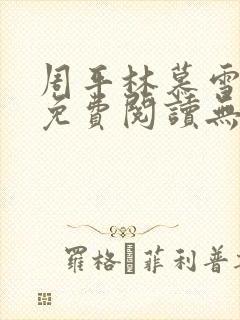 周平林慕雪
免費閱讀無
羅格·菲利普